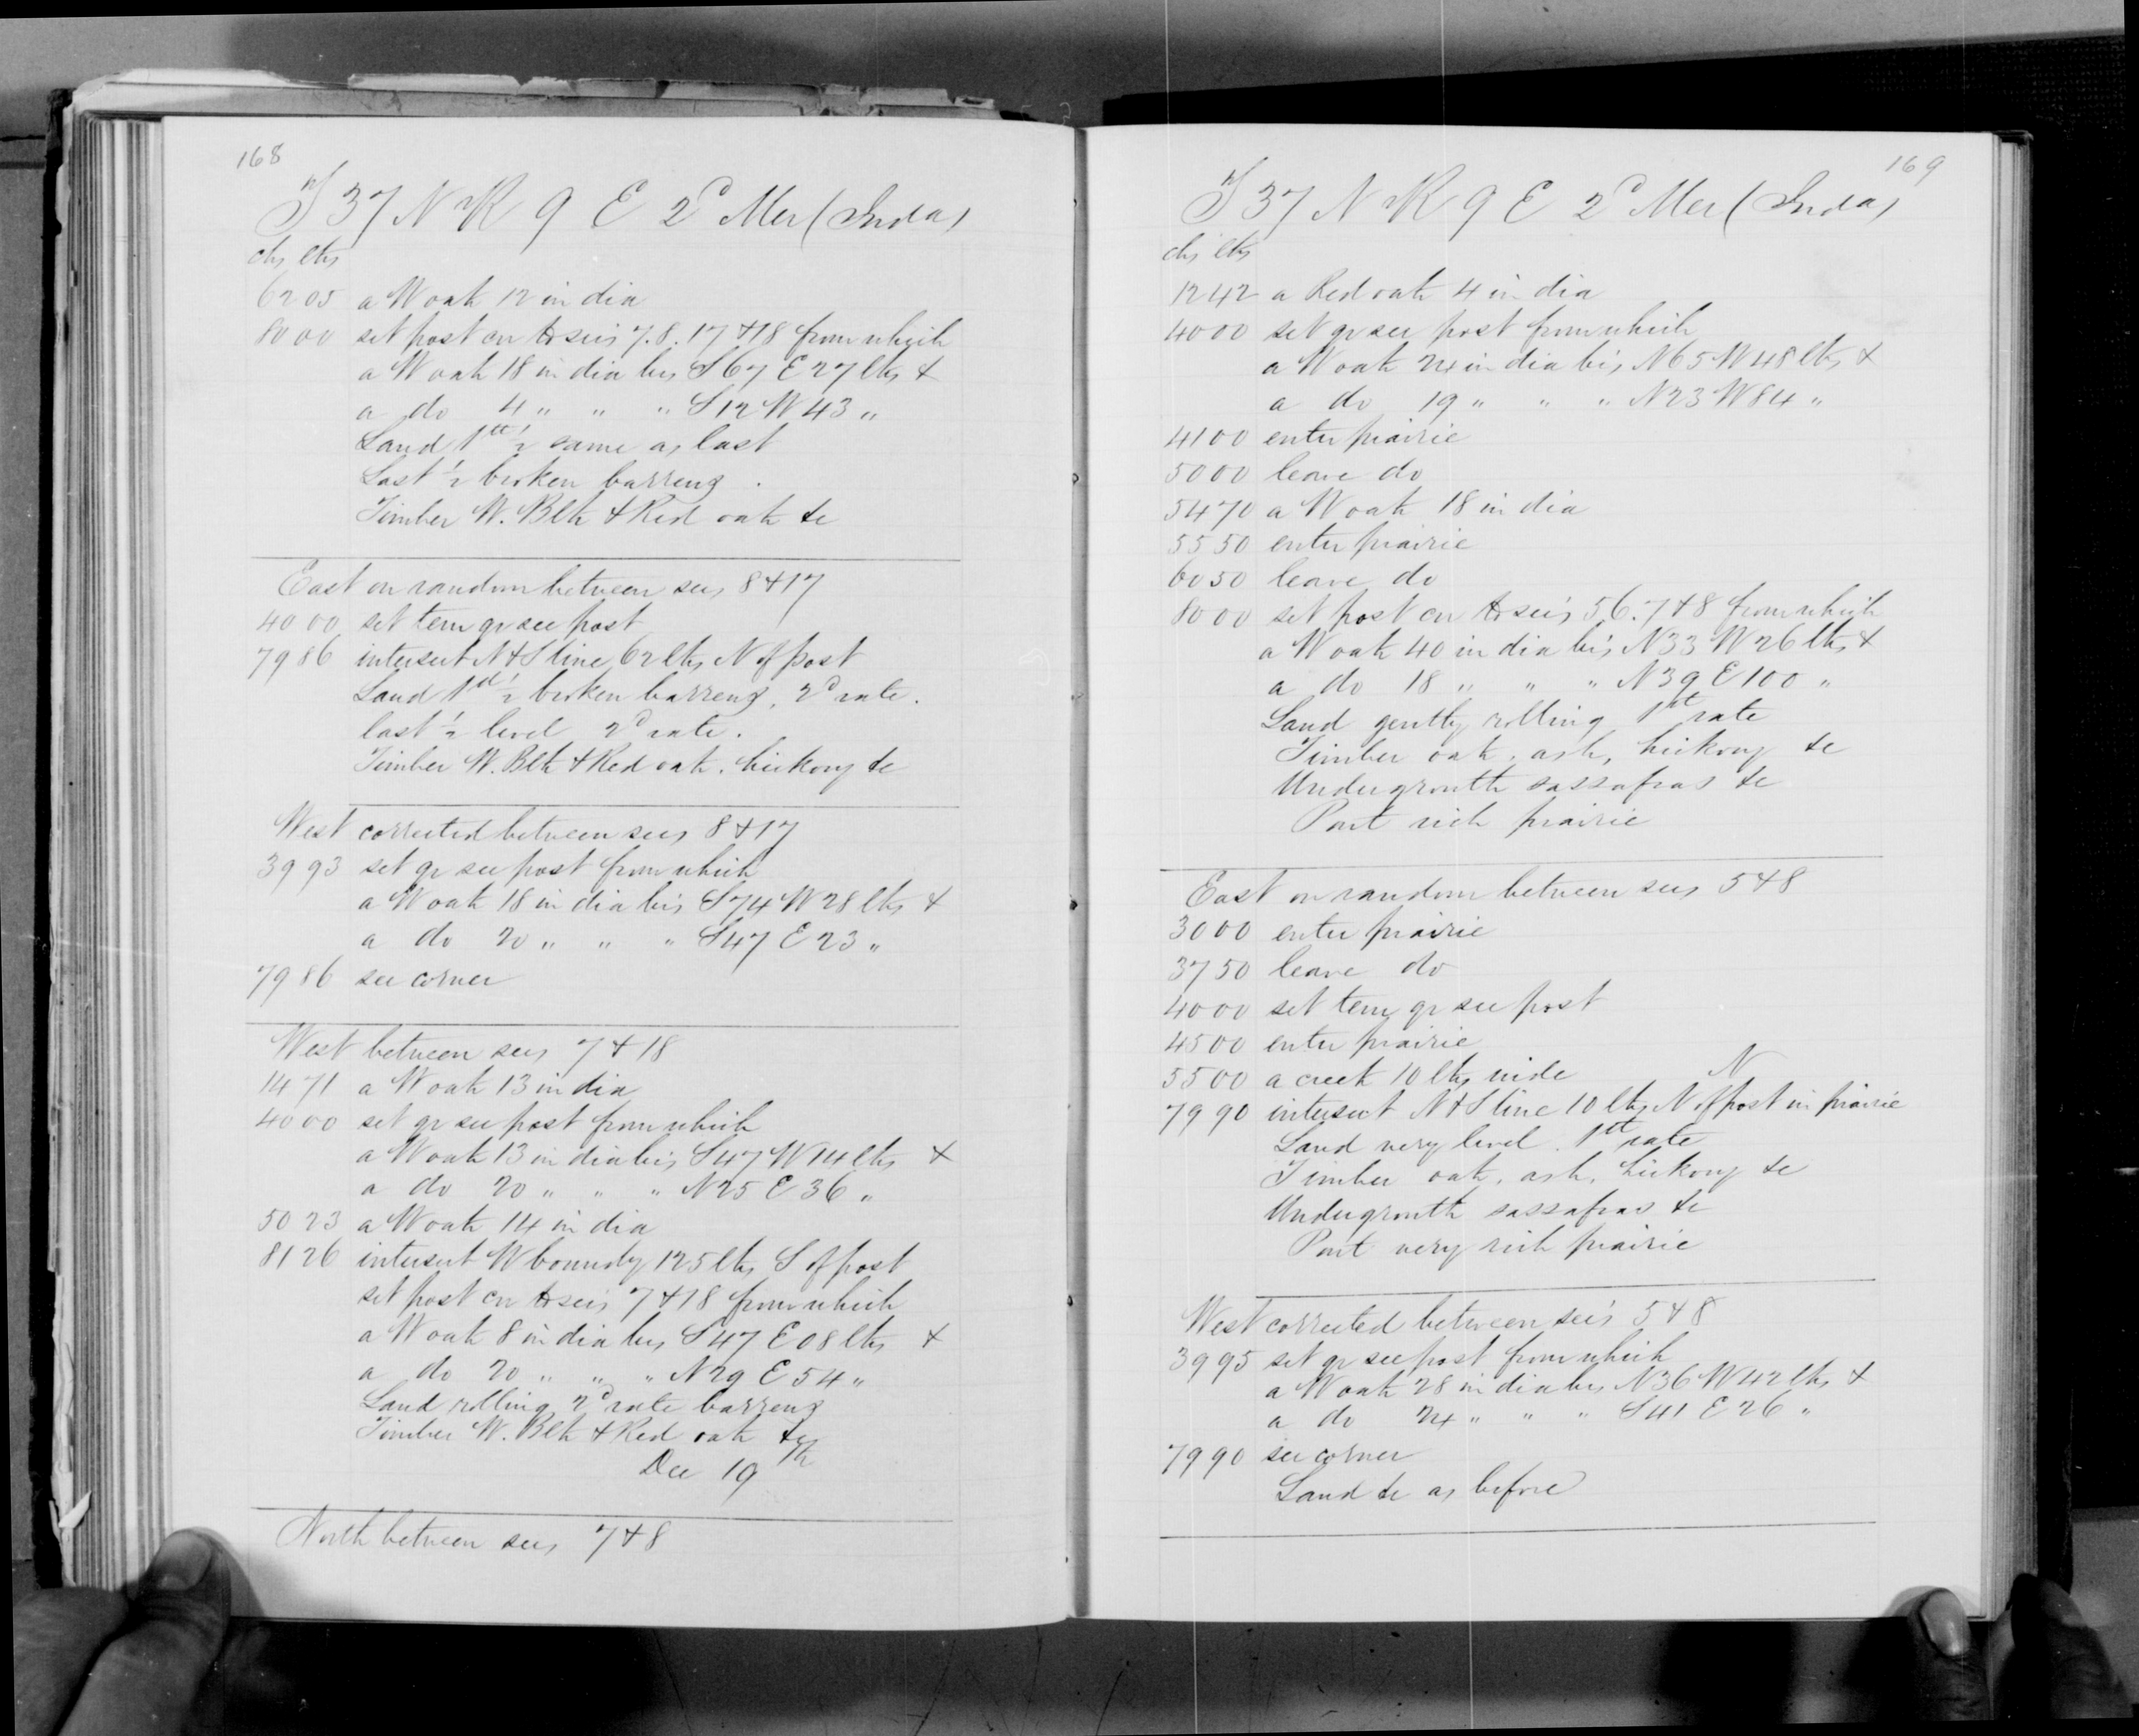 168
T 37 N R 9 E 2d Mer (Inda)
chs lks
62 05 a W oak 12 in dia
80 00 set post cor to sec's 7. 8. 17 & 18 from which
a W oak 18 in dia brs S 67 E 27 lks &
a do 4 " " " S 12 W 43 "
Land 1st ½ same as last
Last ½ broken barrens.
Timber W. Blk & Red oak &c
East on random between secs 8 & 17
40 00 set tem qr sec post
79 86 intersect N & S line 62 lks N of post
Land 1st ½ broken barrens, 2d rate.
last ½ level 2d rate.
Timber W. Blk & Red oak. hickory &c
West corrected between secs 8 & 17
39 93 set qr sec post from which
a W oak 18 in dia brs S 74 W 28 lks &
a do 20 " " " S 47 E 23 "
79 86 sec corner
West between secs 7 & 18
14 71 a W oak 13 in dia
40 00 set qr sec post from which
a W oak 13 in dia brs S 47 W 14 lks &
a do 20 " " " N 25 E 36 "
50 23 a W oak 14 in dia
81 26 intersect W boundy 125 lks S of post
set post cor to sec's 7 & 18 from which
a W oak 8 in dia brs S 47 E 08 lks &
a do 20 " " " N 29 E 54 "
Land rolling 2d rate barrens
Timber W. Blk & Red oak &c
Dec 19th
North between secs 7 & 8
169
T 37 N R 9 E 2d Mer (Inda)
chs lks
12 42 a Red oak 4 in dia
40 00 set qr sec post from which
a W oak 24 in dia brs N 65 W 48 lks &
a do 19 " " " N 23 W 84 "
41 00 enter prairie
50 00 leave do
54 70 a W oak 18 in dia
55 50 enter prairie
60 50 leave do
80 00 set post cor to sec's 5 6. 7 & 8 from which
a W oak 40 in dia brs N 33 W 26 lks &
a do 18 " " " N 39 E 100 "
Land gently rolling 1st rate
Timber oak, ash, hickory &c
Undergrowth sassafras &c
Part rich prairie
East on random between secs 5 & 8
30 00 enter prairie
37 50 leave do
40 00 set tem qr sec post
45 00 enter prairie
55 00 a creek 10 lks wide N
79 90 intersect N & S line 10 lks N of post in prairie
Land very level. 1st rate
Timber oak, ash, hickory &c
Undergrowth sassafras &c
Part very rich prairie
West corrected between sec's 5 & 8
39 95 set qr sec post from which
a W oak 28 in dia brs N 36 W 42 lks &
a do 24 " " " S 41 E 26 "
79 90 sec corner
Land &c as before